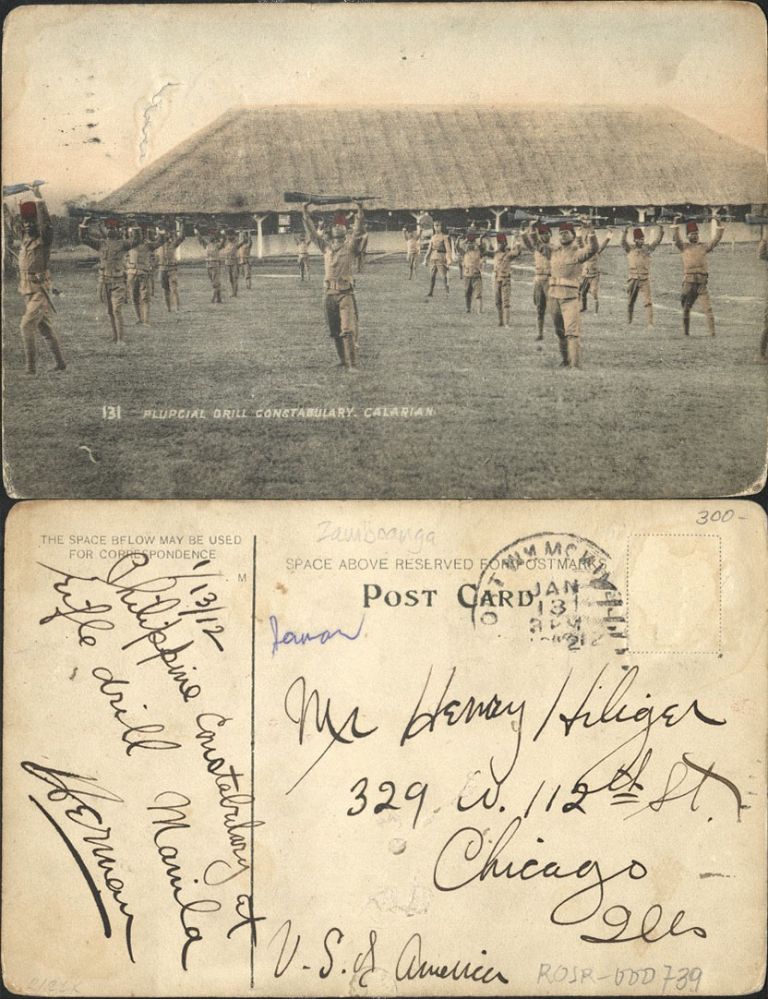 131 PLUPCIAL DRILL CONSTABULARY. CALARIAN
THE SPACE BELOW MAY BE USED
FOR CORRESPONDENCE
M
Zamboanga
300-
SPACE ABOVE RESERVED FOR POSTMARKS
POST CARD
WM MCKIN
JAN
13
1/13/12
Philippine Constabulary at
rifle drill Manila
Herman
Mr Henry Hiliger
329 W. 112th St.
Chicago
Ills
U.S. of America
ROSR-000739